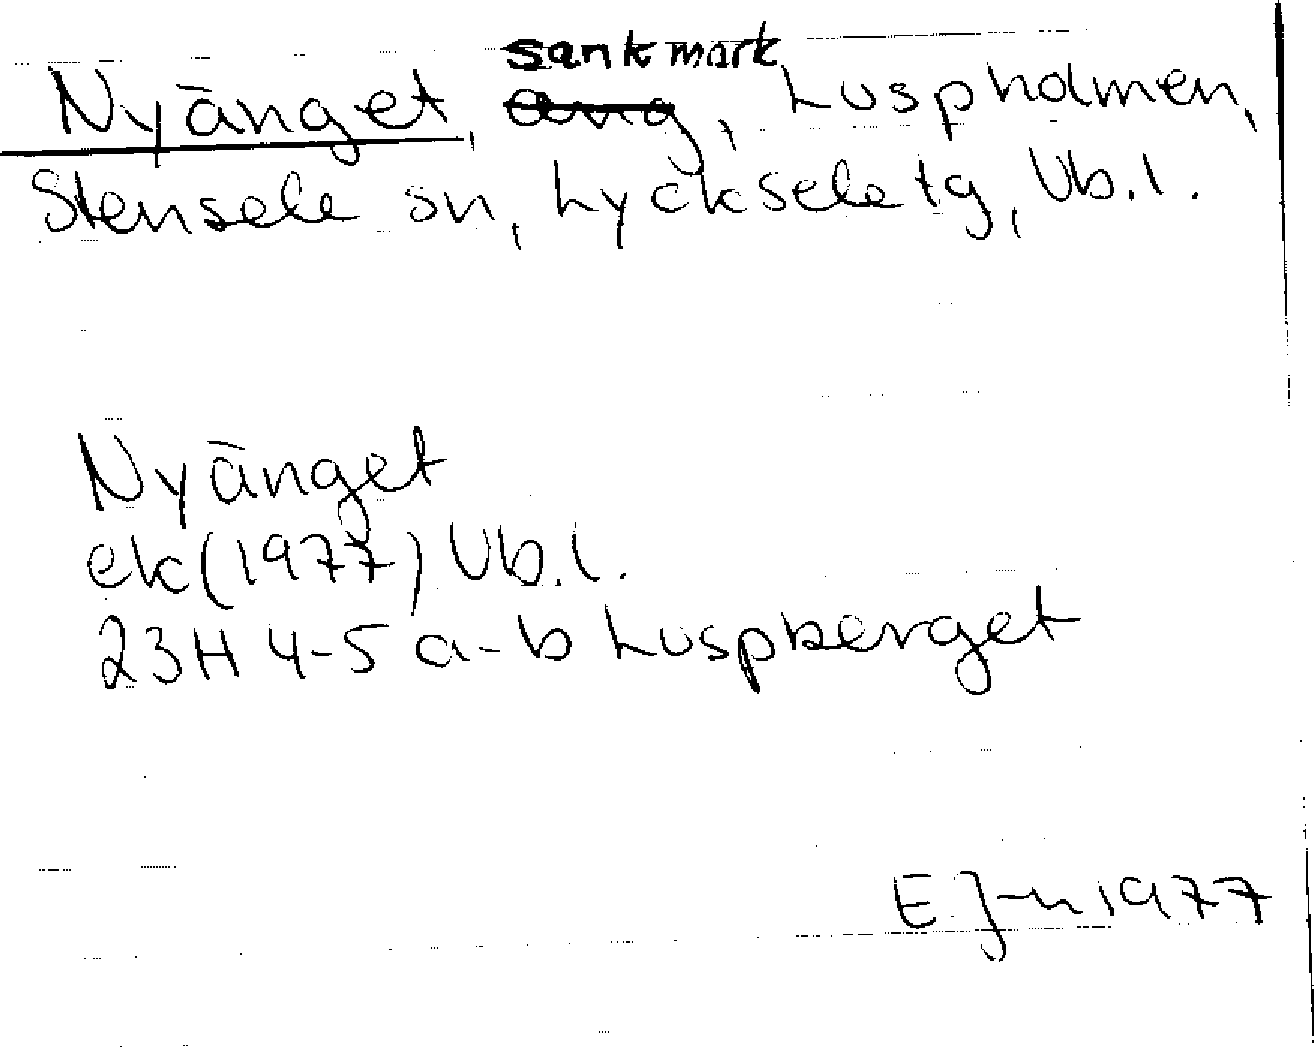 sankmark
Nyänget, äng, Luspholmen,
Stensele sn, Lycksele tg, Vb.l.
Nyänget
ek (1977) Vb.l.
23H 4-5 a-b Luspberget
E J-n 1977